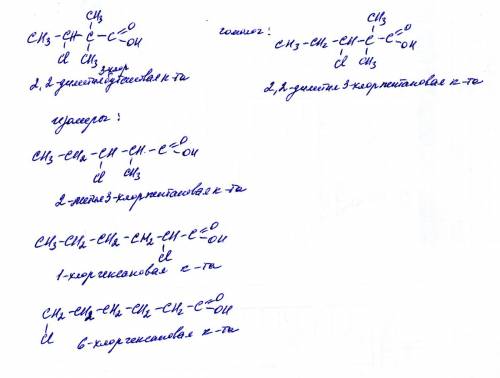 CH3
CH3 - CH - C - C =O
Cl CH3 OH
3-хлор
2,2-диметилбутановая к-та
гомолог:
CH3
CH3 - CH2 - CH - C - C =O
Cl CH3 OH
2,2-диметил 3-хлорпентановая к-та
изомеры:
CH3 - CH2 - CH - CH - C =O
Cl CH3 OH
2-метил 3-хлорпентановая к-та
CH3 - CH2 - CH2 - CH2 - CH - C =O
Cl OH
1-хлоргексановая к-та
CH2 - CH2 - CH2 - CH2 - CH2 - C =O
Cl OH
6-хлоргексановая к-та